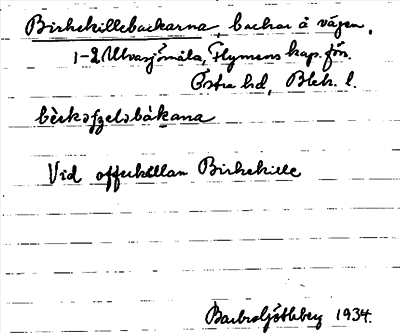 Birkekillebackarna, backar å vägen,
1-2 Utvasjömåla, Flymens kap. förs.
Östra hd, Blek. l.
bèrkəʃɛləbàkana
Vid offerkällan Birkekille
Barbro Götlberg 1934.